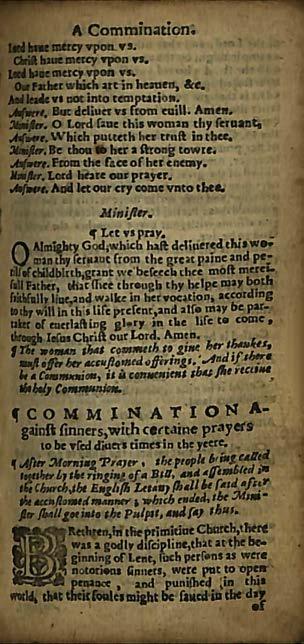 A Commination.
Lord haue mercy vpon vs.
Christ haue mercy vpon vs.
Lord haue mercy vpon vs.
Our Father which art in heauen, &c.
And leade vs not into temptation.
Answere. But deliuer vs from euill. Amen.
Minister. O Lord saue this woman thy seruant,
Answere. Which putteth her trust in thee.
Minister. Be thou to her a strong towre.
Answere. From the face of her enemy.
Minister. Lord heare our prayer.
Answere. And let our cry come vnto thee.
Minister.
¶ Let vs pray.
O Almighty God, which hast deliuered this wo-
man thy seruant from the great paine and pe-
rill of childbirth, grant we beseech thee most merci-
full Father, that shee through thy helpe may both
faithfully liue, and walke in her vocation, according
to thy will in this life present, and also may be par-
taker of euerlasting glory in the life to come,
through Iesus Christ our Lord. Amen.
¶ The woman that commeth to giue her thankes,
must offer her accustomed offerings. And if there
be a Communion, it is conuenient that she receiue
the holy Communion.
¶ COMMINATION A-
gainst sinners, with certaine prayers
to be vsed diuers times in the yeere.
¶ After Morning Prayer, the people being called
together by the ringing of a Bell, and assembled in
the Church, the English Letany shall be said after
the accustomed manner, which ended, the Mini-
ster shall goe into the Pulpit, and say thus.
BRethren, in the primitiue Church, there
was a godly discipline, that at the be-
ginning of Lent, such persons as were
notorious sinners, were put to open
penance, and punished in this
world, that their soules might be saued in the day
of